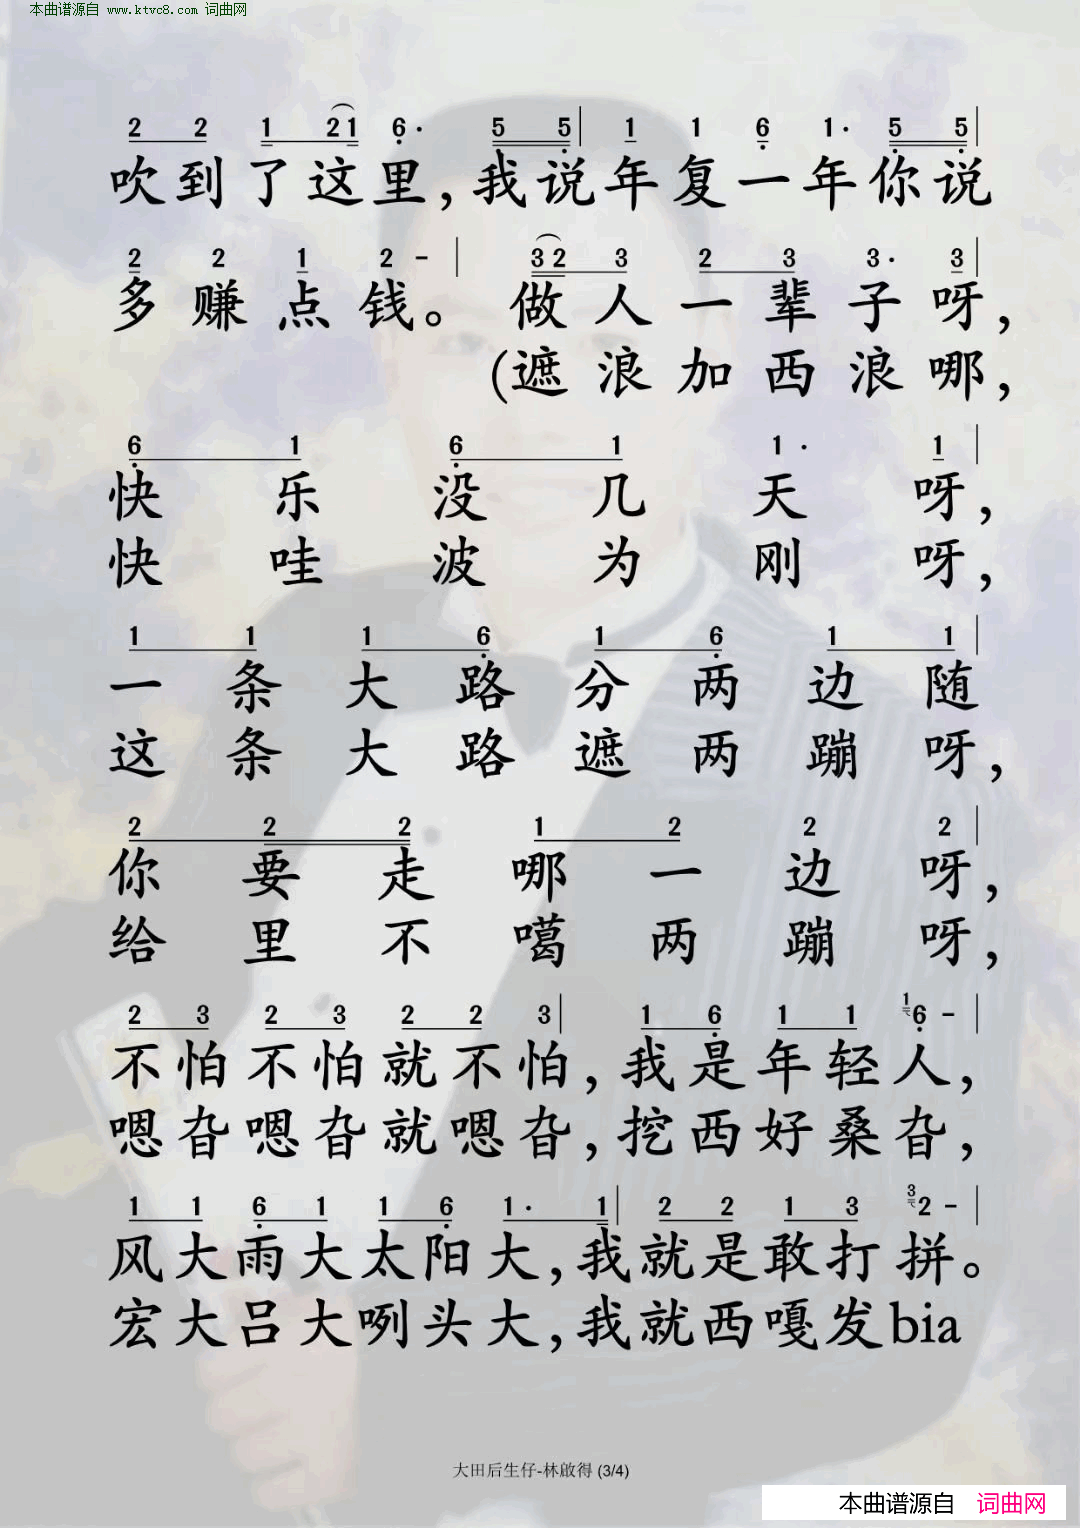 本曲谱源自 www.ktvc8.com 词曲网
2 2 1 2 1 6· 5 5 | 1 1 6 1· 5 5 |
吹到了这里,我说年复一年你说
2 2 1 2 - | 3 2 3 2 3 3· 3 |
多赚点钱。做人一辈子呀,
(遮浪加西浪哪,
6 1 6 1 1· 1 |
快乐没几天呀,
快哇波为刚呀,
1 1 1 6 1 6 1 1 |
一条大路分两边随
这条大路遮两蹦呀,
2 2 2 1 2 2 2 |
你要走哪一边呀,
给里不噶两蹦呀,
2 3 2 3 2 2 3 | 1 6 1 1 1 6 - |
不怕不怕就不怕,我是年轻人,
嗯旮嗯旮就嗯旮,挖西好桑旮,
1 1 6 1 1 6 1· 1 | 2 2 1 3 3 2 - |
风大雨大太阳大,我就是敢打拼。
宏大吕大咧头大,我就西嘎发bia
大田后生仔-林啟得 (3/4)
本曲谱源自 词曲网